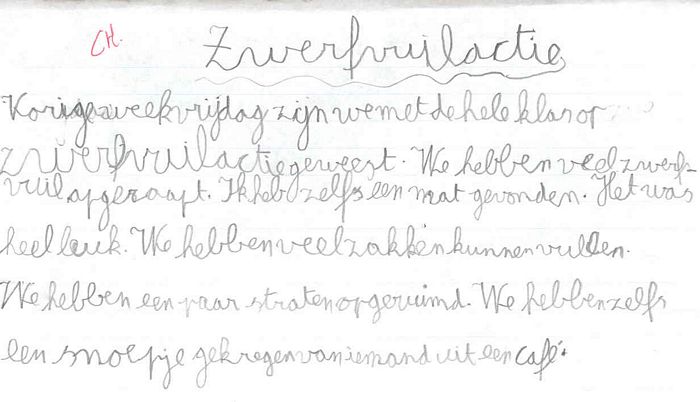 CH.
Zwerfvuilactie
Vorige week vrijdag zijn we met de hele klas op
zwerfvuilactie geweest. We hebben veel zwerf-
vuil opgeraapt. Ik heb zelfs een mat gevonden. Het was
heel leuk. We hebben veel zakken kunnen vullen.
We hebben een paar straten opgeruimd. We hebben zelfs
een snoepje gekregen van iemand uit een café.